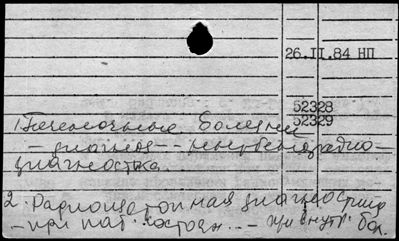 26.II.84 НП
52328
52329
1. Печеночные болезни
- диагноз -
диагностика.
2. Радиоизотопная диагностика
- при пат. состоян... - при внутр. бол.